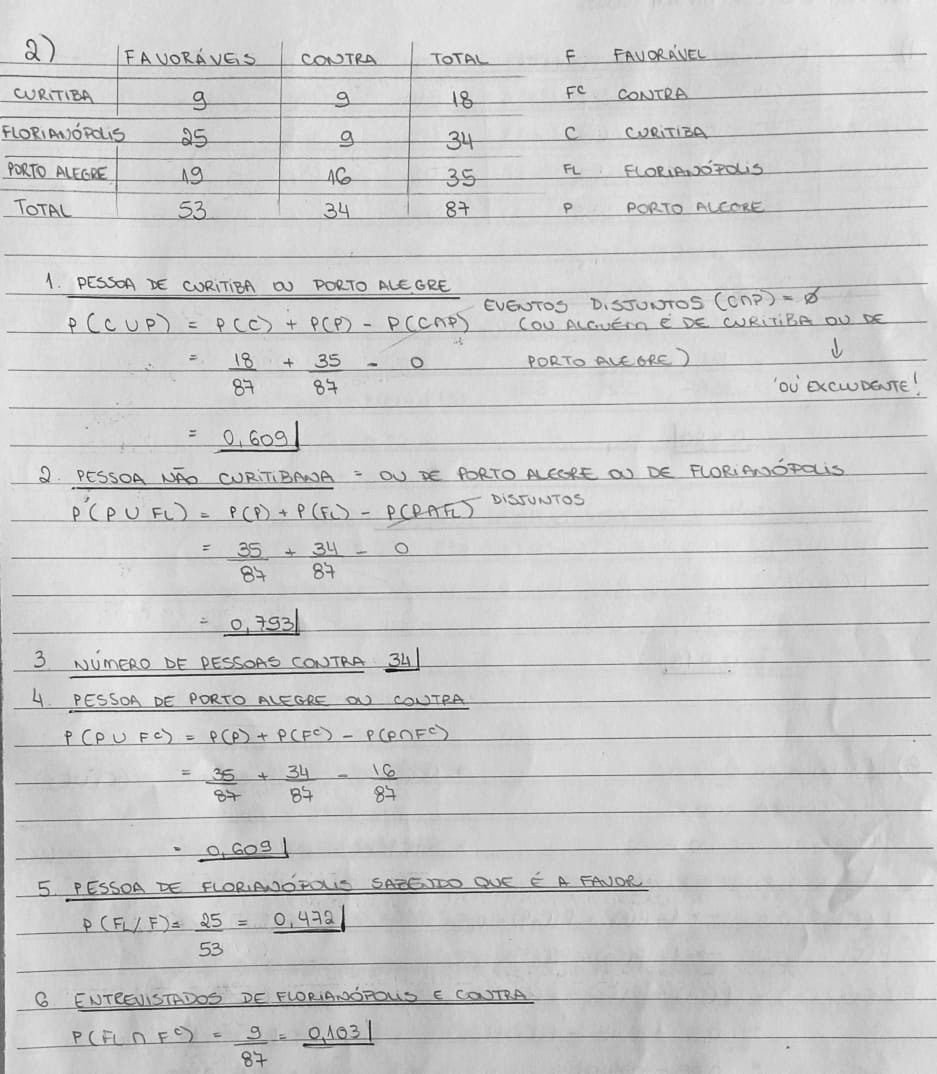 2) FAVORÁVEIS CONTRA TOTAL F FAVORÁVEL
CURITIBA 9 9 18 Fᶜ CONTRA
FLORIANÓPOLIS 25 9 34 C CURITIBA
PORTO ALEGRE 19 16 35 FL FLORIANÓPOLIS
TOTAL 53 34 87 P PORTO ALEGRE
1. PESSOA DE CURITIBA OU PORTO ALEGRE
P(C∪P) = P(C) + P(P) - P(C∩P) EVENTOS DISJUNTOS (C∩P) = Ø
(OU ALGUÉM É DE CURITIBA OU DE
= 18/87 + 35/87 - 0 PORTO ALEGRE) ↓
'OU' EXCLUDENTE!
= 0,609
2. PESSOA NÃO CURITIBANA = OU DE PORTO ALEGRE OU DE FLORIANÓPOLIS
P(P∪FL) = P(P) + P(FL) - P(P∩FL) DISJUNTOS
= 35/87 + 34/87 - 0
= 0,793
3 NÚMERO DE PESSOAS CONTRA 34
4. PESSOA DE PORTO ALEGRE OU CONTRA
P(P∪Fᶜ) = P(P) + P(Fᶜ) - P(P∩Fᶜ)
= 35/87 + 34/87 - 16/87
= 0,609
5. PESSOA DE FLORIANÓPOLIS SABENDO QUE É A FAVOR
P(FL/F) = 25/53 = 0,472
6 ENTREVISTADOS DE FLORIANÓPOLIS E CONTRA
P(FL∩Fᶜ) = 9/87 = 0,103